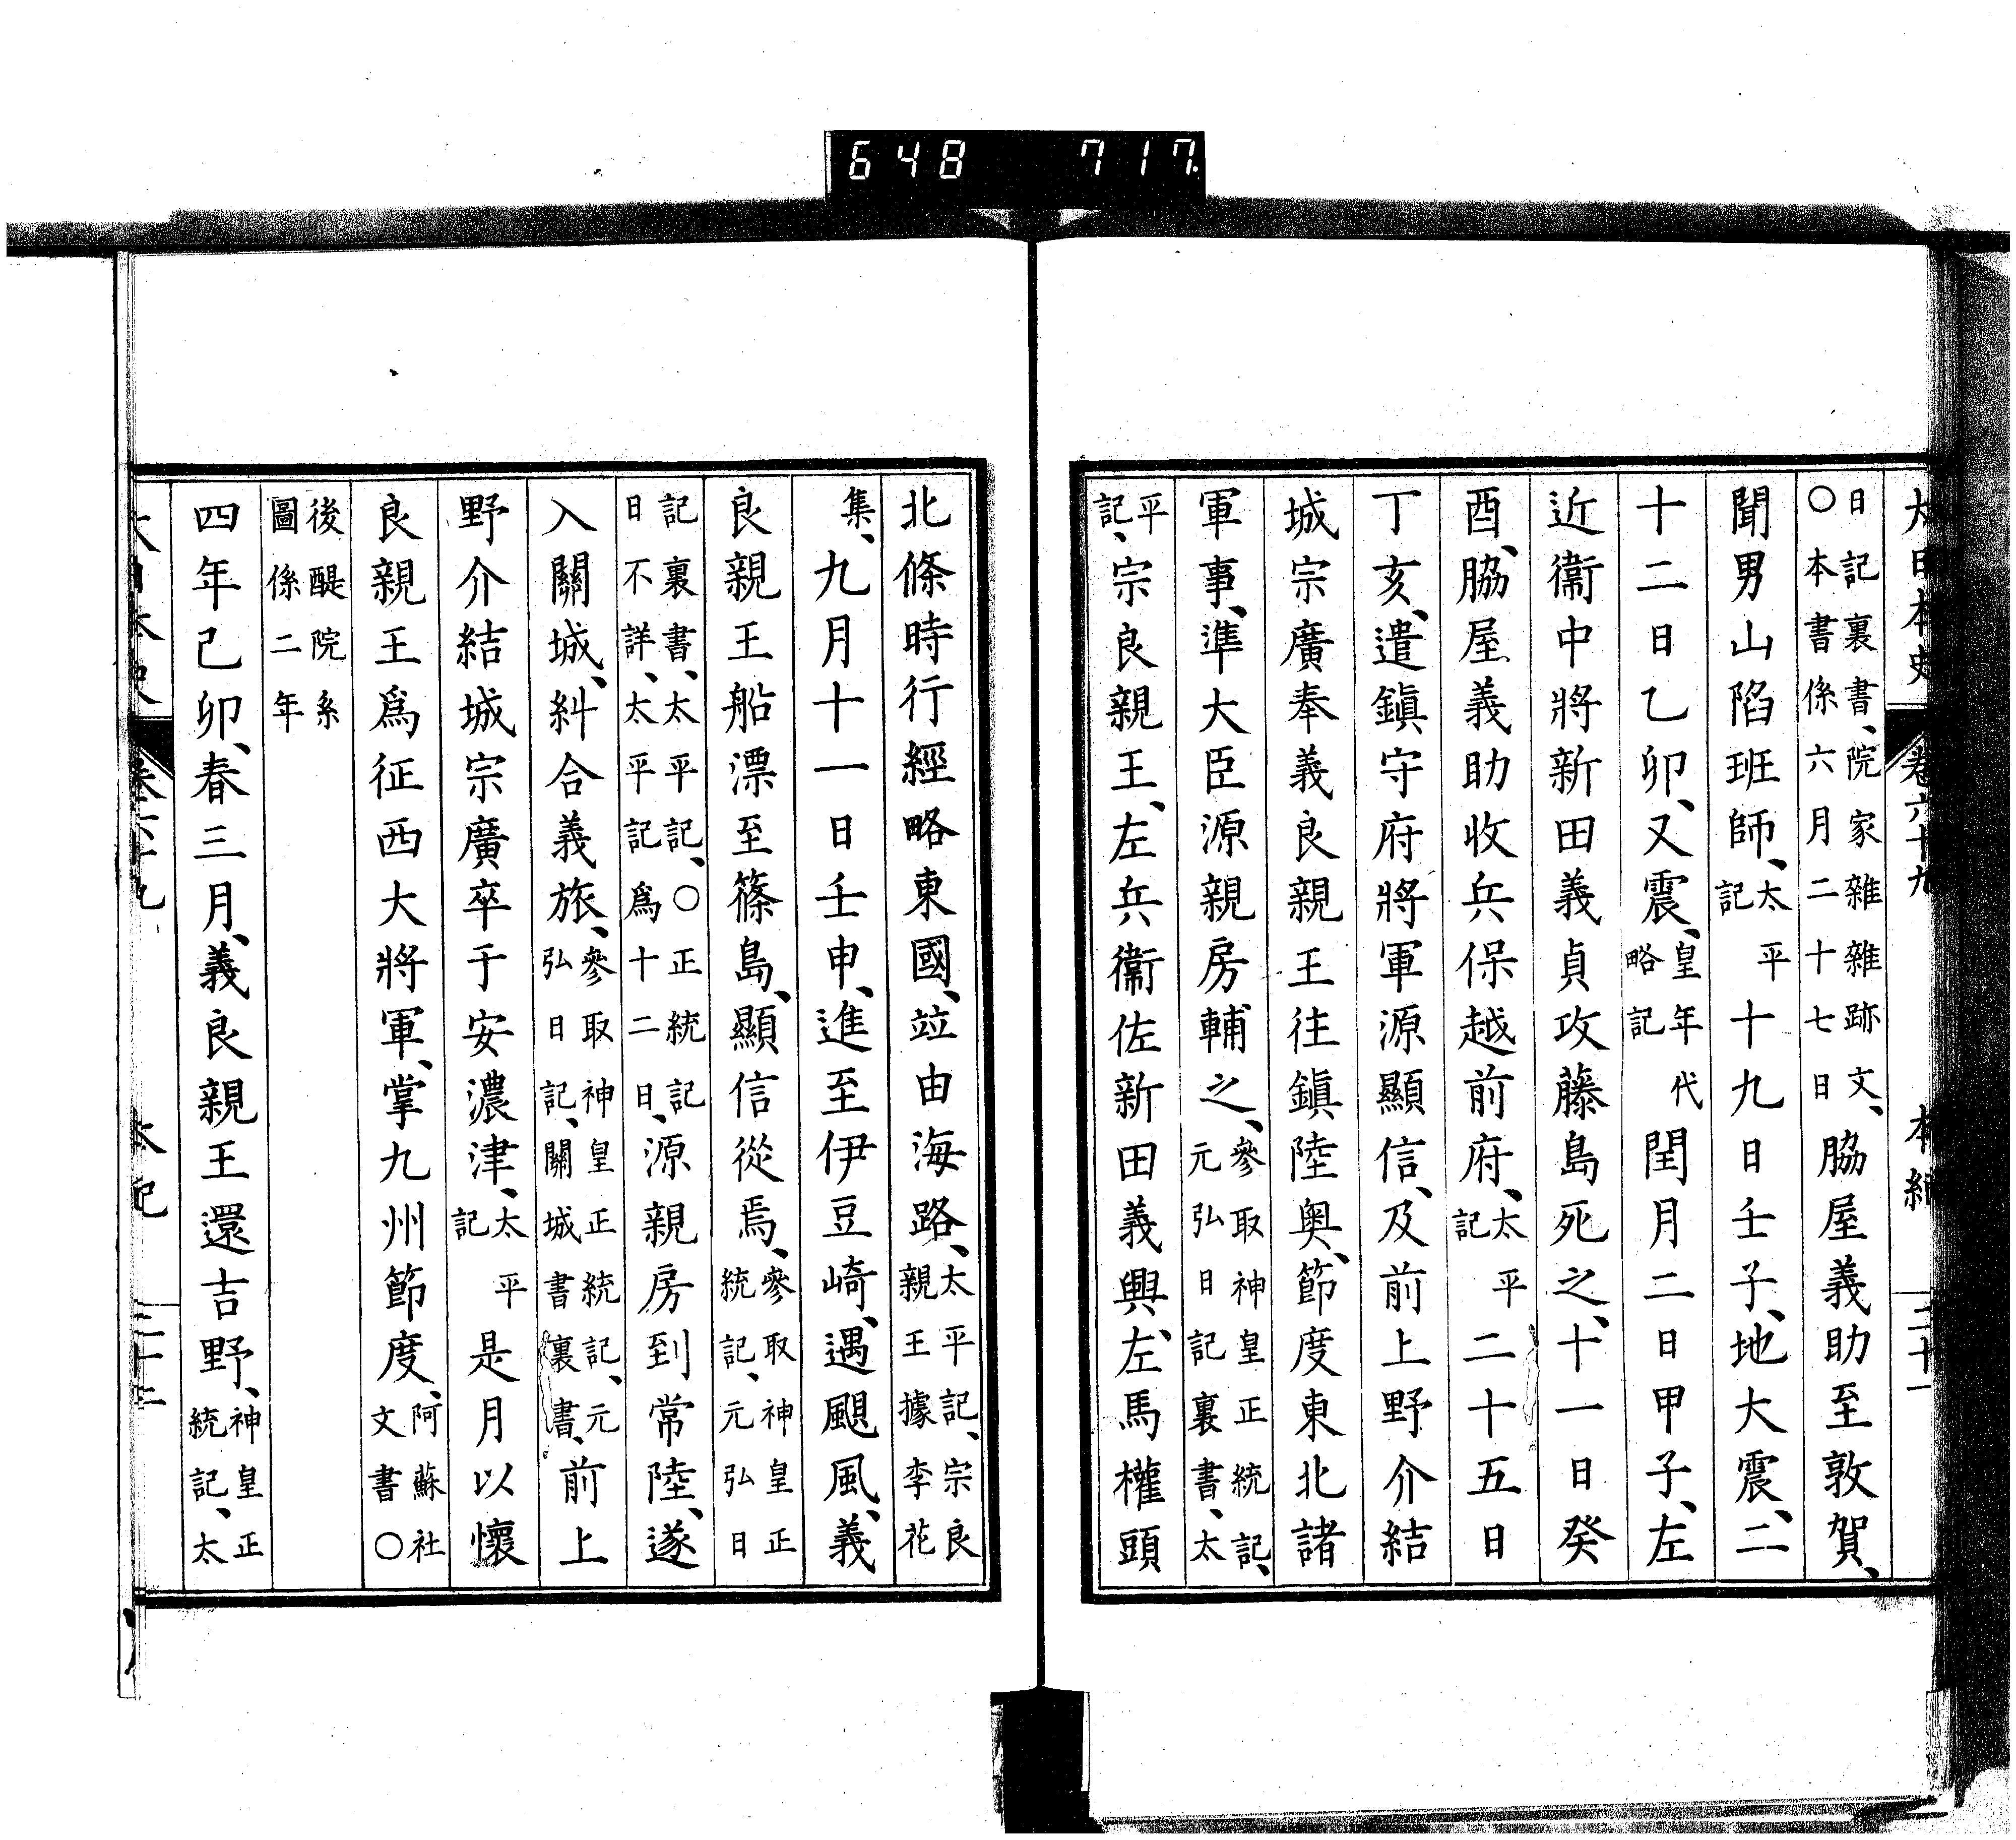 648 717
大日本史 卷六十九 本紀 二十一
日記裏書、院家雜雜跡文、○本書係六月二十七日脇屋義助至敦賀、
聞男山陷班師、太平記十九日壬子、地大震、二
十二日乙卯、又震、皇年代略記閏月二日甲子、左
近衞中將新田義貞攻藤島死之、十一日癸
酉、脇屋義助收兵保越前府、太平記二十五日
丁亥、遣鎭守府將軍源顯信、及前上野介結
城宗廣奉義良親王往鎭陸奧、節度東北諸
軍事、準大臣源親房輔之、參取神皇正統記、元弘日記裏書、太
平記、宗良親王、左兵衞佐新田義興、左馬權頭
北條時行經略東國、竝由海路、太平記、宗良親王據李花
集、九月十一日壬申、進至伊豆崎、遇颶風、義
良親王船漂至篠島、顯信從焉、參取神皇正統記、元弘日
記裏書、太平記、○正統記日不詳、太平記爲十二日、源親房到常陸、遂
入關城、糾合義旅、參取神皇正統記、元弘日記、關城書裏書、前上
野介結城宗廣卒于安濃津、太平記是月以懷
良親王爲征西大將軍、掌九州節度、阿蘇社文書○
後醍院系圖係二年
四年己卯、春三月、義良親王還吉野、神皇正統記、太
大日本史 卷六十九 本紀